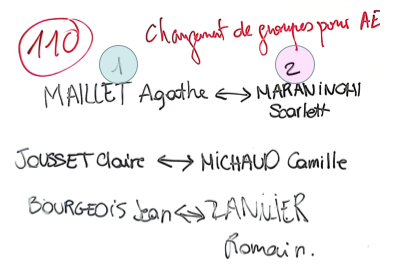 110 Changement de groupes pour AE
1 2
MAILLET Agathe ↔ MARANINCHI
Scarlett
JOUSSET Claire ↔ MICHAUD Camille
BOURGEOIS Jean ↔
Romain.